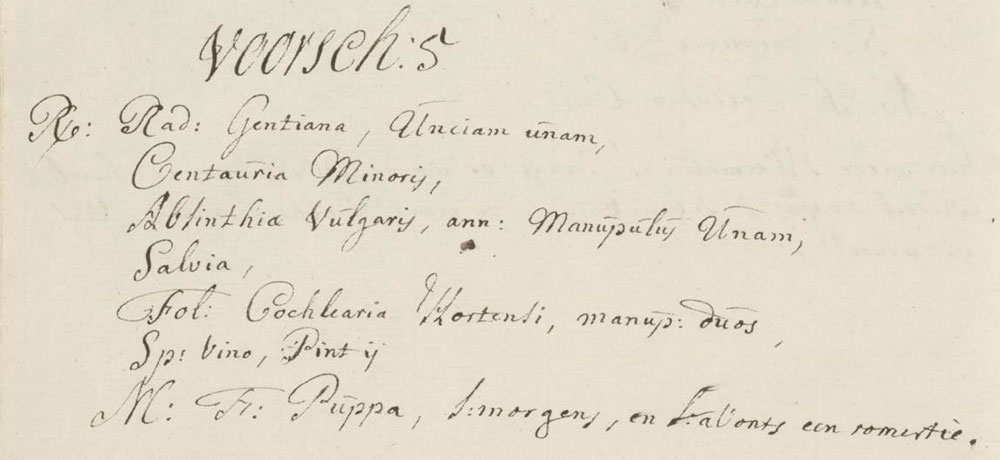 Voorsch: 5
Rx: Rad: Gentiana, Unciam unam,
Centauria Minoris,
Absinthiæ Vulgaris, ann: Manupulus Unam,
Salvia,
Fol: Cochlearia Hortensi, manup: duos,
Sp: vino, Pint ij
M: F: Puppa, s:morgens, en s:avonts een romertie.